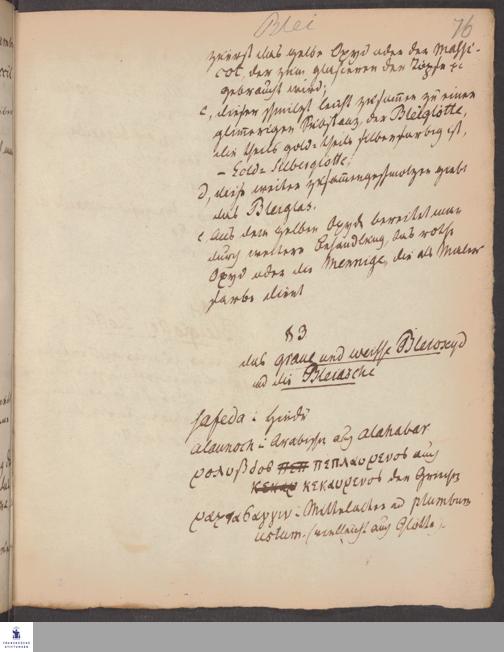 Blei
76
zuerst das gelbe Oxyd oder der Massi-
cot, der zum glasieren der Töpfe pc
gebraucht wird;
c, dieser schmilzt leicht zusammen zu einer
glimmerigen Substanz, der Bleiglötte,
die theils gold- theils silberfarbig ist,
– Gold- Silberglötte;
d, diese weiter zusammengeschmolzen giebt
das Bleiglas.
e Aus dem gelben Oxyd bereitet man
durch weitere Behandlung, das rothe
Oxyd oder die Mennige, die als Maler
farbe dient
§ 3
das graue und weisse Bleioxyd
und die Bleiasche
safeda : Hindu
alaunoch : Arabisch aus Alahabar
μολυβδος πεπλαυμενος auch
κεκαυμενος der Griechen
μαρτασαργιν : Mittelalter ad plumbum
ustum. (vielleicht auch Glötte).
FRANCKESCHE
STIFTUNGEN